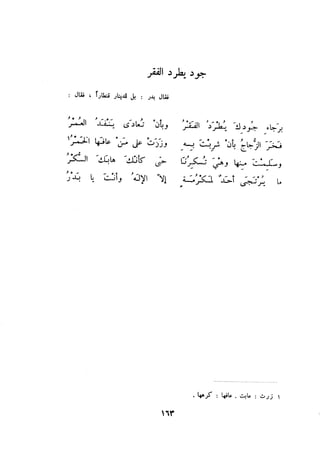 جود يطرد الفقر
فقال بدر : بل للدينار قنطاراً ، فقال :
برجاءِ جُودِكَ يُطْرَدُ الفَقْرُ وبأنْ تُعادَى يَنْفَدُ العُمْرُ
فَخَرَ الزُّجاجُ بأنْ شَرِبْتَ بِهِ وزَرَتْ على مَنْ عافَها الخَمْرُ١
وسَلِمْتَ منها وهيَ تُسكِرُنا حتى كأنّكَ هابَكَ السُّكْرُ
ما يُرْتَجَى أحَدٌ لمَكْرُمَةٍ إلاّ الإلَهُ وأنْتَ يا بَدْرُ
١ زرت : عابت . عافها : كرهها .
١٦٣